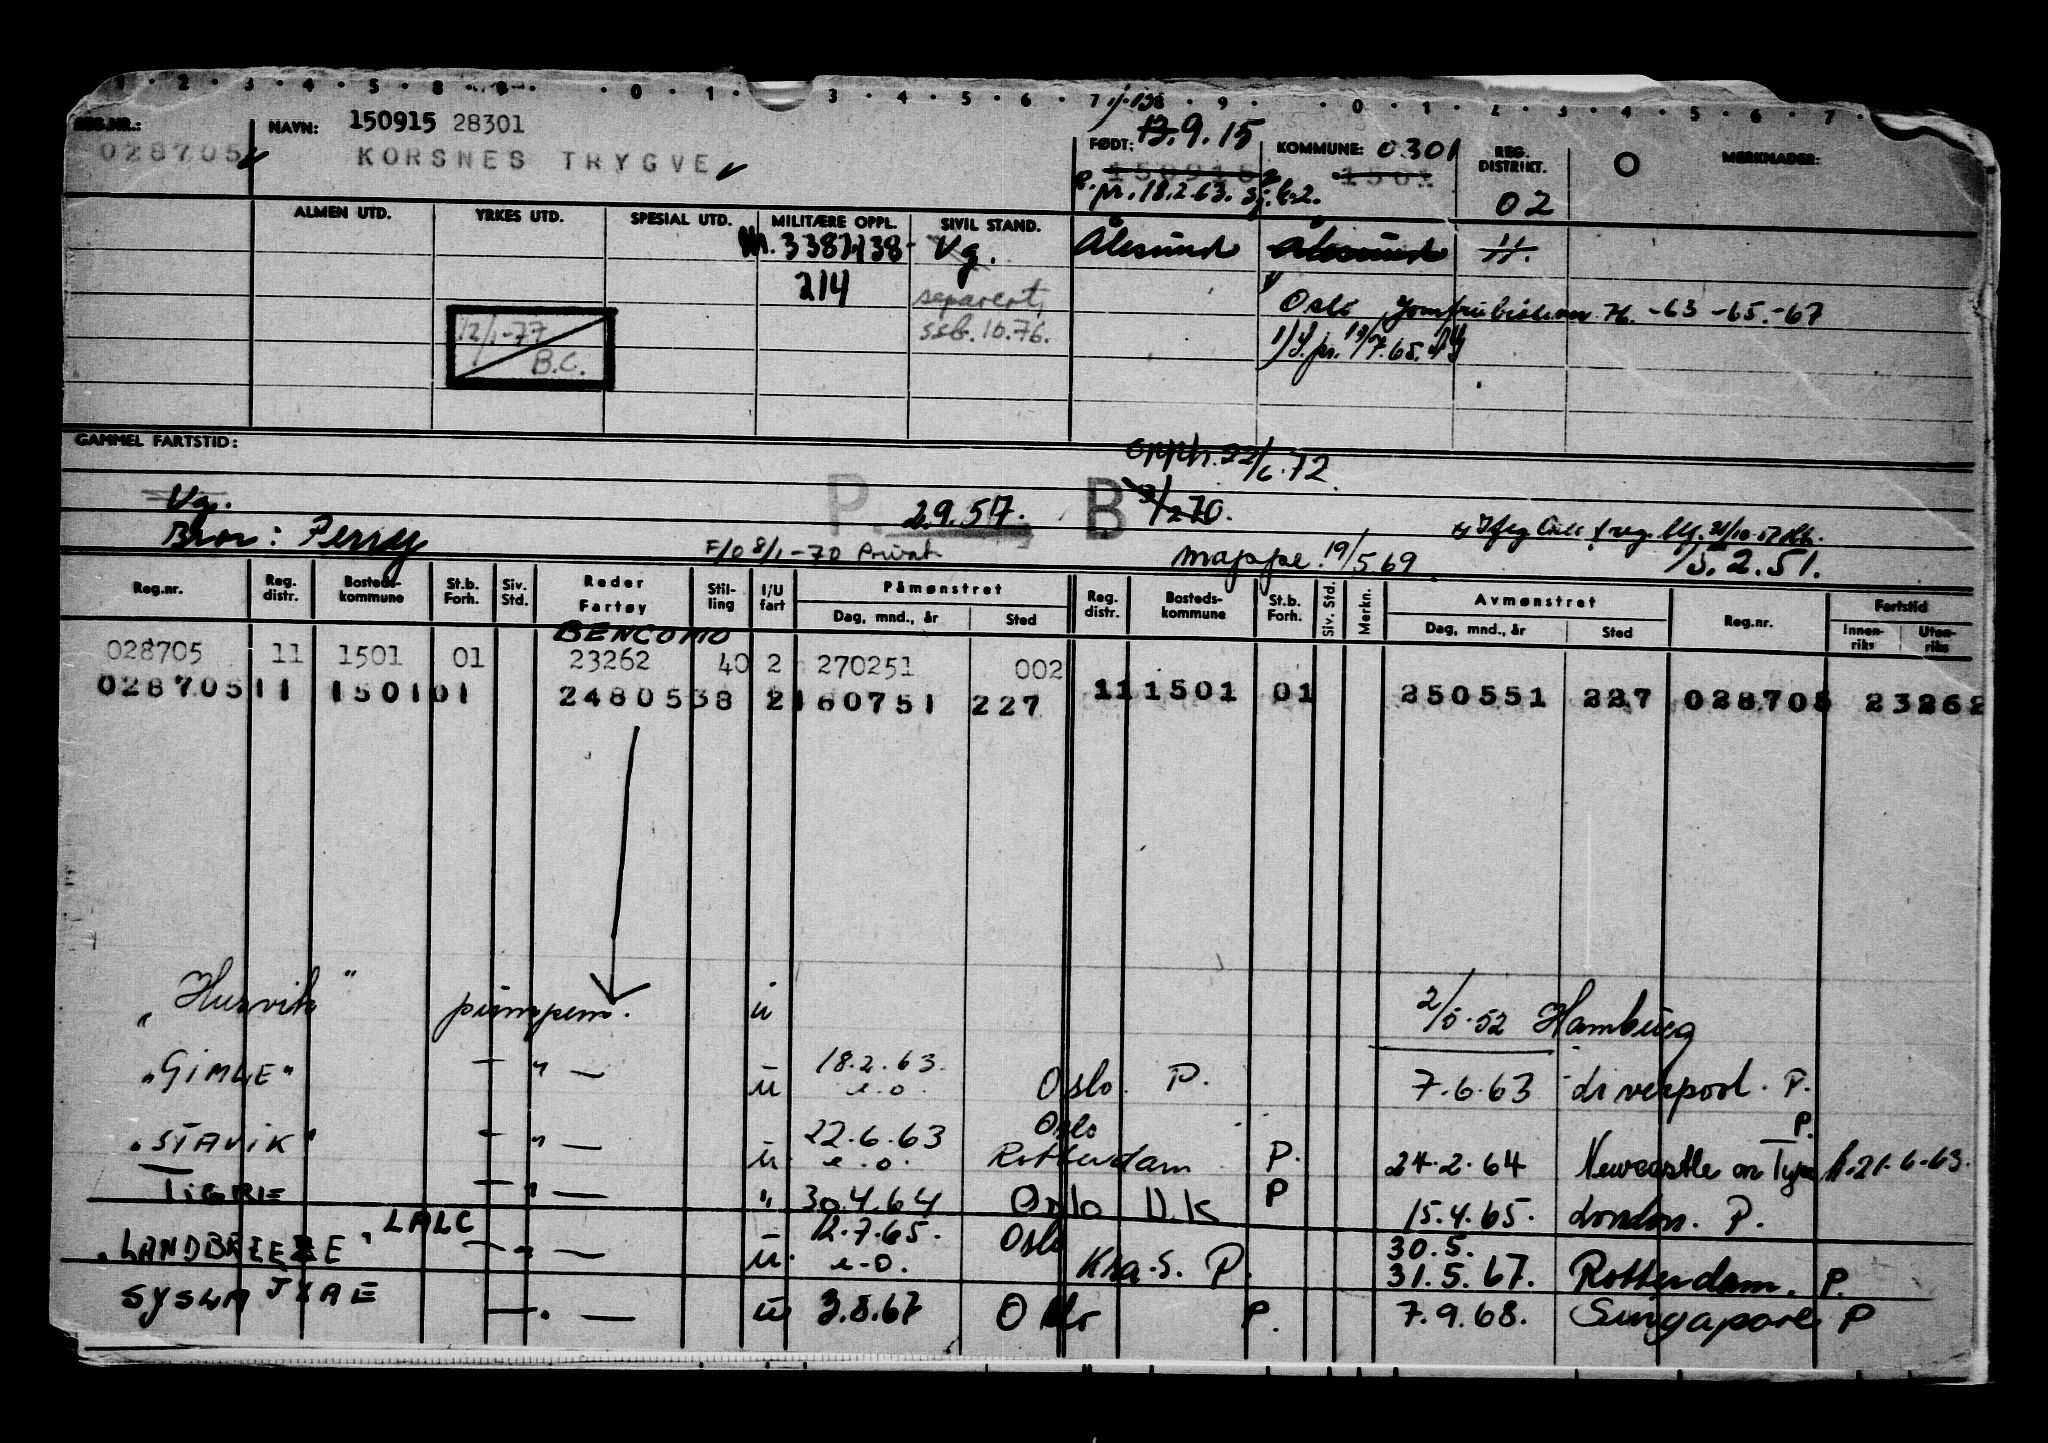 1 · 2 · 3 · 4 · 5 · 8 · 9 · · 0 · 1 · 3 · 4 · 5 · 6 · 7 · 8 · 9 · · 0 · 1 · 2 · 3 · 4 · 5 · 6 · 7 ·
REG.NR.: NAVN: 150915 28301 FØDT: 9.15 KOMMUNE: 0301 REG. DISTRIKT. MERKNADER:
028705 KORSNES TRYGVE 150915 1501
pr. 18.2.63. sj.b.2. 02
ALMEN UTD. YRKES UTD. SPESIAL UTD. MILITÆRE OPPL. SIVIL STAND.
Vg. Ålesund Ålesund 11.
214 separert,
Oslo 76. -63 -65.-67
12/1-77 ssb. 10.76.
B.C. 1) pr. 19/7.65.
GAMMEL FARTSTID:
opph. 22/6.72
Vg. P 2.9.57. B 3/2 70.
Bror: Perry F/O 8/1-70 Privat mappe. 19/5 69 15.2.51.
Reg.nr. Reg. distr. Bosteds-kommune St.b. Forh. Siv. Std. Reder Fartøy Stil-ling I/U fart Påmønstret Dag, mnd., år Sted Reg. distr. Bosteds-kommune St.b. Forh. Siv. Std. Merkn. Avmønstret Dag, mnd., år Sted Reg.nr. Fartstid Innen-riks Uten-riks
BENCOMO
028705 11 1501 01 23262 40 2 270251 002
028705 11 1501 01 24805 38 2 160751 227 11 1501 01 250551 227 028705 23262
"Husvik" pumpem. u 2/5.52 Hamburg
"GIMLE" — " — u 18.2.63. e.o. Oslo. P. 7.6.63 Liverpool. P.
"STAVIK" — " — u 22.6.63 e.o. Oslo Rotterdam P. 24.2.64 Newcastle on Tyne P. 21.6.63.
TIGRE — " — " 30.4.64 Oslo U.K P 15.4.65. London. P.
"LANDBREEZE" LALC — " — u. 12.7.65. e.o. Oslo Kra.S. P. 30.5. 31.5.67. Rotterdam. P.
SYSLA JXAE — " — u 3.8.67 Oslo P. 7.9.68. Singapore P